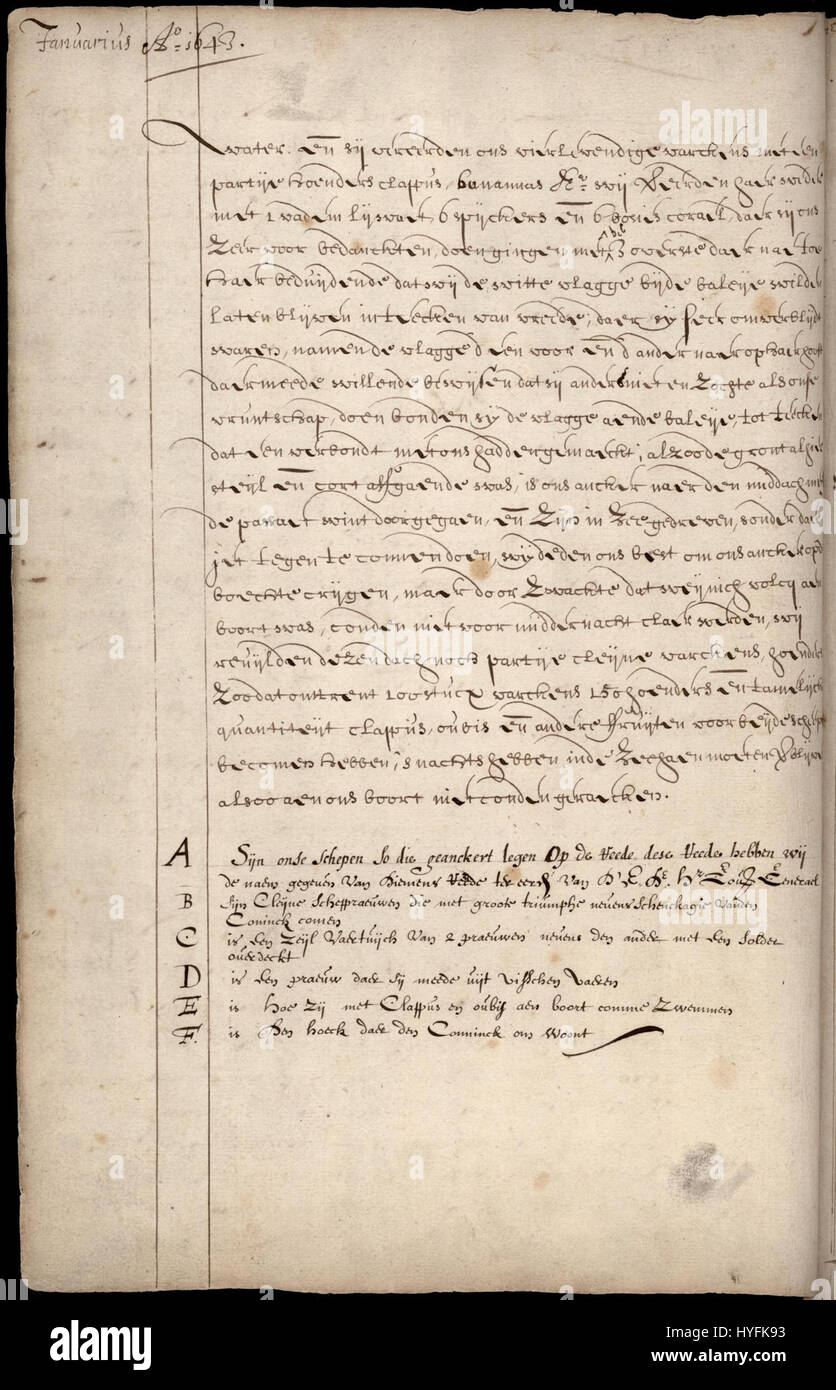 Januarius Ao 1643.
water. en̄ sij vereerden ons vier levendige varckens met een
partije hoenders clappus, banannas &c. wij vereerden haer weder
met 1 vadem lijwaet 6 spijckers en̄ 6 bosies corael, daer sij ons
zeer voor bedanckten, doen gingen met d 3 overste daer nae toe
haer beduijdende dat wij de witte vlagge bij de baleije wilden
laten blijven in teecken van vreede, daer sij seer om verblijdt
waren, namen de vlagge d'een voor en̄ d'ander naer op haer hooft
daer meede willende bewijsen dat sij anders niet en zochte als onse
vruntschap, doen bonden sij de vlagge aende baleije, tot teecken
dat een verbondt met ons hadden gemaeckt; alzoo de gront alhier
steijl en̄ cort affgaende was, is ons ancker naer den middach met
de passaet wint doorgegaen, en̄ zijn in zee gedreven, sonder daer
jet tegen te connen doen, wij deden ons best om ons ancker op de
boech te crijgen, maer door zwackte dat weijnich volcq aen
boort was, conden niet voor middernacht claer werden, wij
reuijlden dezen dach noch partije cleijne varckens, hoenders
zoo dat omtrent 100 stucx varckens 150 hoenders en̄ tamelijcke
quantiteijt clappus, oubis en̄ andere fruijten voor beijde schepen
becomen hebben, s'nachts hebben inde zeehaen moeten blijven
alsoo aen ons boort niet conden geraecken.
A Sijn onse schepen so die geanckert legen op de reede dese reede hebben wij
de naem gegeven van diemens reede ter eeren van d' E. Hr. Gouv. Generael
B sijn cleijne scheppraeuwen die met groote triumphe nevens schenckagie vanden
Coninck comen
C is een zeijl vaertuijch van 2 praeuwen nevens den ander met een solder
overdeckt
D is een praeuw daer sij meede uijt visschen vaeren
E is hoe zij met Clappus en oubis aen boort comme zwemmen
F. is den hoeck daer den Conninck om woont
alamy
www.alamy.com
HYFK93